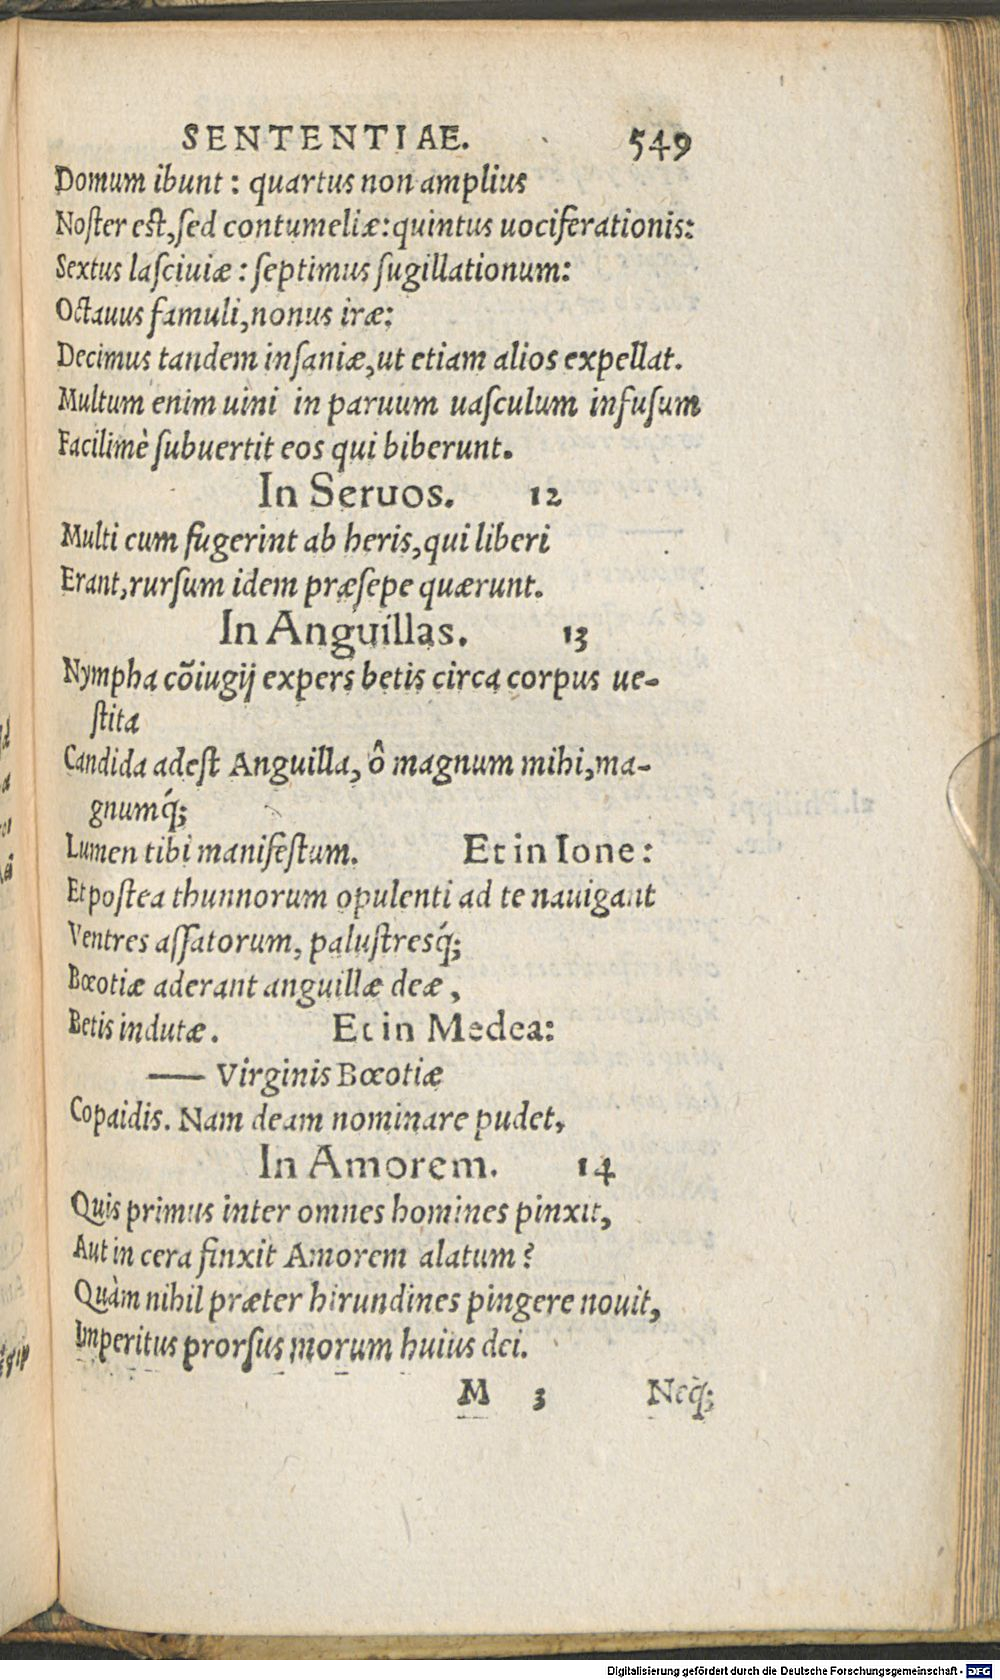 SENTENTIAE. 549
Domum ibunt: quartus non amplius
Noſter eſt, ſed contumeliæ: quintus uociferationis:
Sextus laſciuiæ: ſeptimus ſugillationum:
Octauus famuli, nonus iræ:
Decimus tandem inſaniæ, ut etiam alios expellat.
Multum enim uini in paruum uaſculum infuſum
Facilimè ſubuertit eos qui biberunt.
In Seruos. 12
Multi cum fugerint ab heris, qui liberi
Erant, rurſum idem præſepe quærunt.
In Anguillas. 13
Nympha cõiugij expers betis circa corpus ue-
ſtita
Candida adeſt Anguilla, ô magnum mihi, ma-
gnumq́;
Lumen tibi manifeſtum. Et in Ione:
Et poſtea thunnorum opulenti ad te nauigant
Ventres aſſatorum, paluſtresq́;
Bœotiæ aderant anguillæ deæ,
Betis indutæ. Et in Medea:
— Virginis Bœotiæ
Copaidis. Nam deam nominare pudet,
In Amorem. 14
Quis primus inter omnes homines pinxit,
Aut in cera finxit Amorem alatum?
Quàm nihil præter hirundines pingere nouit,
Imperitus prorſus morum huius dei.
M 3 Neq̀;
Digitalisierung gefördert durch die Deutsche Forschungsgemeinschaft - DFG